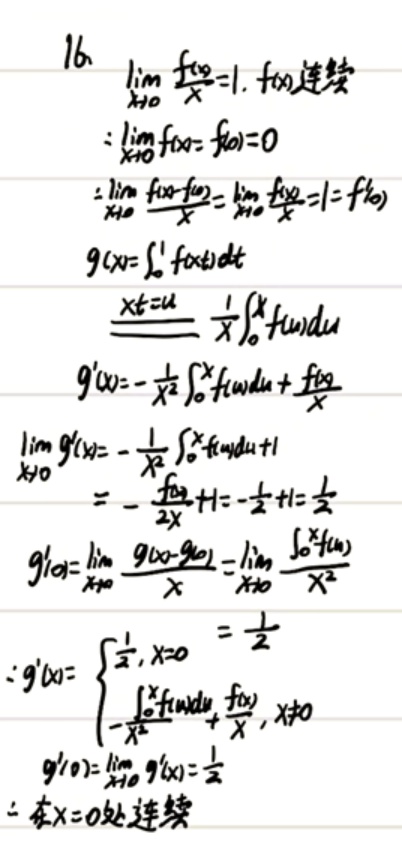 16.
lim x→0 f(x)/x = 1. f(x)连续
∴ lim x→0 f(x) = f(0) = 0
∴ lim x→0 (f(x)-f(0))/x = lim x→0 f(x)/x = 1 = f'(0)
g(x) = ∫₀¹ f(xt)dt
xt=u 1/x ∫₀ˣ f(u)du
g'(x) = - 1/x² ∫₀ˣ f(u)du + f(x)/x
lim x→0 g'(x) = - 1/x² ∫₀ˣ f(u)du + 1
= - f(x)/2x + 1 = - 1/2 + 1 = 1/2
g'(0) = lim x→0 (g(x)-g(0))/x = lim x→0 ∫₀ˣ f(u)/x²
= 1/2
∴ g'(x) = { 1/2, x=0
- ∫₀ˣ f(u)du/x² + f(x)/x, x≠0
g'(0) = lim x→0 g'(x) = 1/2
∴ 在x=0处连续